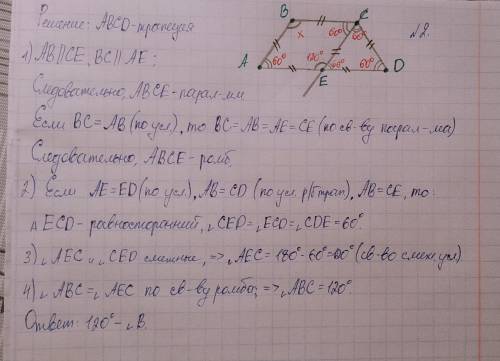 Решение: ABCD-трапеция
№2.
B
C
x
60°
60°
A
60°
120°
60°
60°
D
E
1) AB∥CE, BC∥AE;
Следовательно, ABCE-парал-мм
Если BC=AB (по усл), то BC=AB=AE=CE (по св-ву парал-ма)
Следовательно, ABCE-ромб.
2) Если AE=ED (по усл), AB=CD (по усл. р/б трап), AB=CE, то:
△ECD-равносторонний, ∠CED=∠ECD=∠CDE=60°.
3) ∠AEC и ∠CED смежные, => ∠AEC=180°-60°=120° (св-во смеж угл)
4) ∠ABC=∠AEC по св-ву ромба; => ∠ABC=120°
Ответ: 120°-∠B.